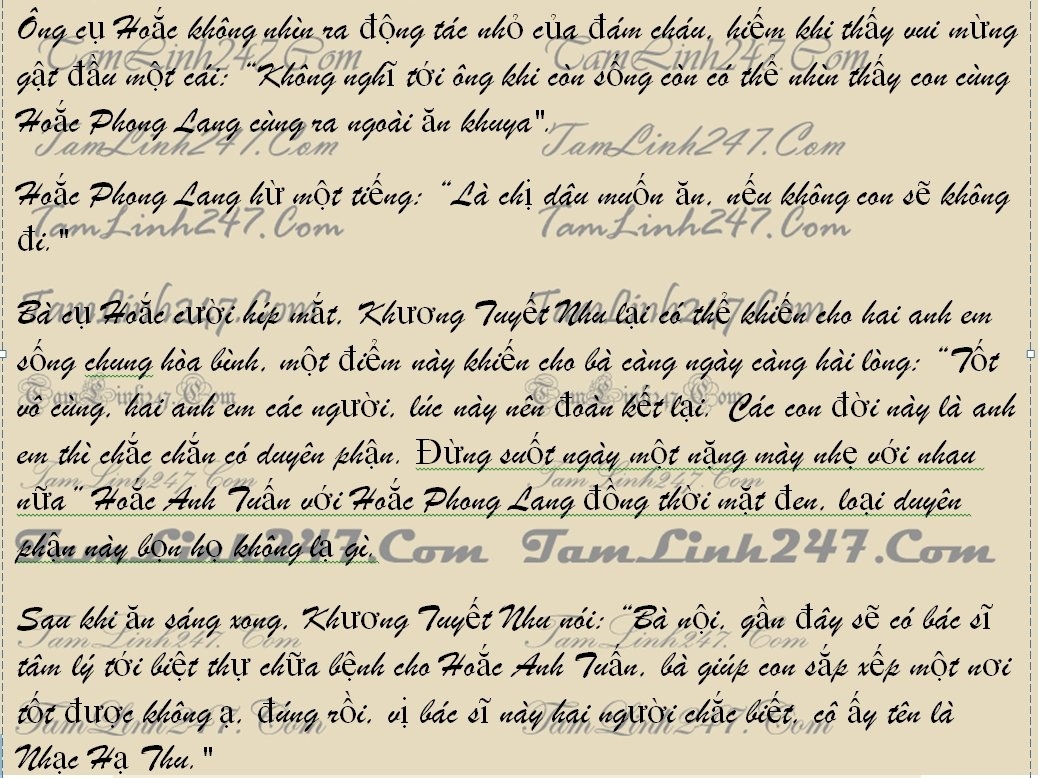 Ông cụ Hoắc không nhìn ra động tác nhỏ của đám cháu, hiếm khi thấy vui mừng
TamLinh247.Com TamLinh247.Com
gật đầu một cái: “Không nghĩ tới ông khi còn sống còn có thể nhìn thấy con cùng
Hoắc Phong Lang cùng ra ngoài ăn khuya".
TamLinh247.Com TamLinh247.Com
Hoắc Phong Lang hừ một tiếng: “Là chị dâu muốn ăn, nếu không con sẽ không
TamLinh247.Com TamLinh247.Com
đi."
Bà cụ Hoắc cười híp mắt, Khương Tuyết Nhu lại có thể khiến cho hai anh em
TamLinh247.Com TamLinh247.Com
sống chung hòa bình, một điểm này khiến cho bà càng ngày càng hài lòng: “Tốt
TamLinh247.Com TamLinh247.Com
vô cùng, hai anh em các người, lúc này nên đoàn kết lại. Các con đời này là anh
em thì chắc chắn có duyên phận. Đừng suốt ngày một nặng mày nhẹ với nhau
TamLinh247.Com TamLinh247.Com
nữa” Hoắc Anh Tuấn với Hoắc Phong Lang đồng thời mặt đen, loại duyên
phận này bọn họ không lạ gì.
TamLinh247.Com TamLinh247.Com
Sau khi ăn sáng xong, Khương Tuyết Nhu nói: “Bà nội, gần đây sẽ có bác sĩ
TamLinh247.Com TamLinh247.Com
tâm lý tới biệt thự chữa bệnh cho Hoắc Anh Tuấn, bà giúp con sắp xếp một nơi
tốt được không ạ, đúng rồi, vị bác sĩ này hai người chắc biết, cô ấy tên là
TamLinh247.Com TamLinh247.Com
Nhạc Hạ Thu."